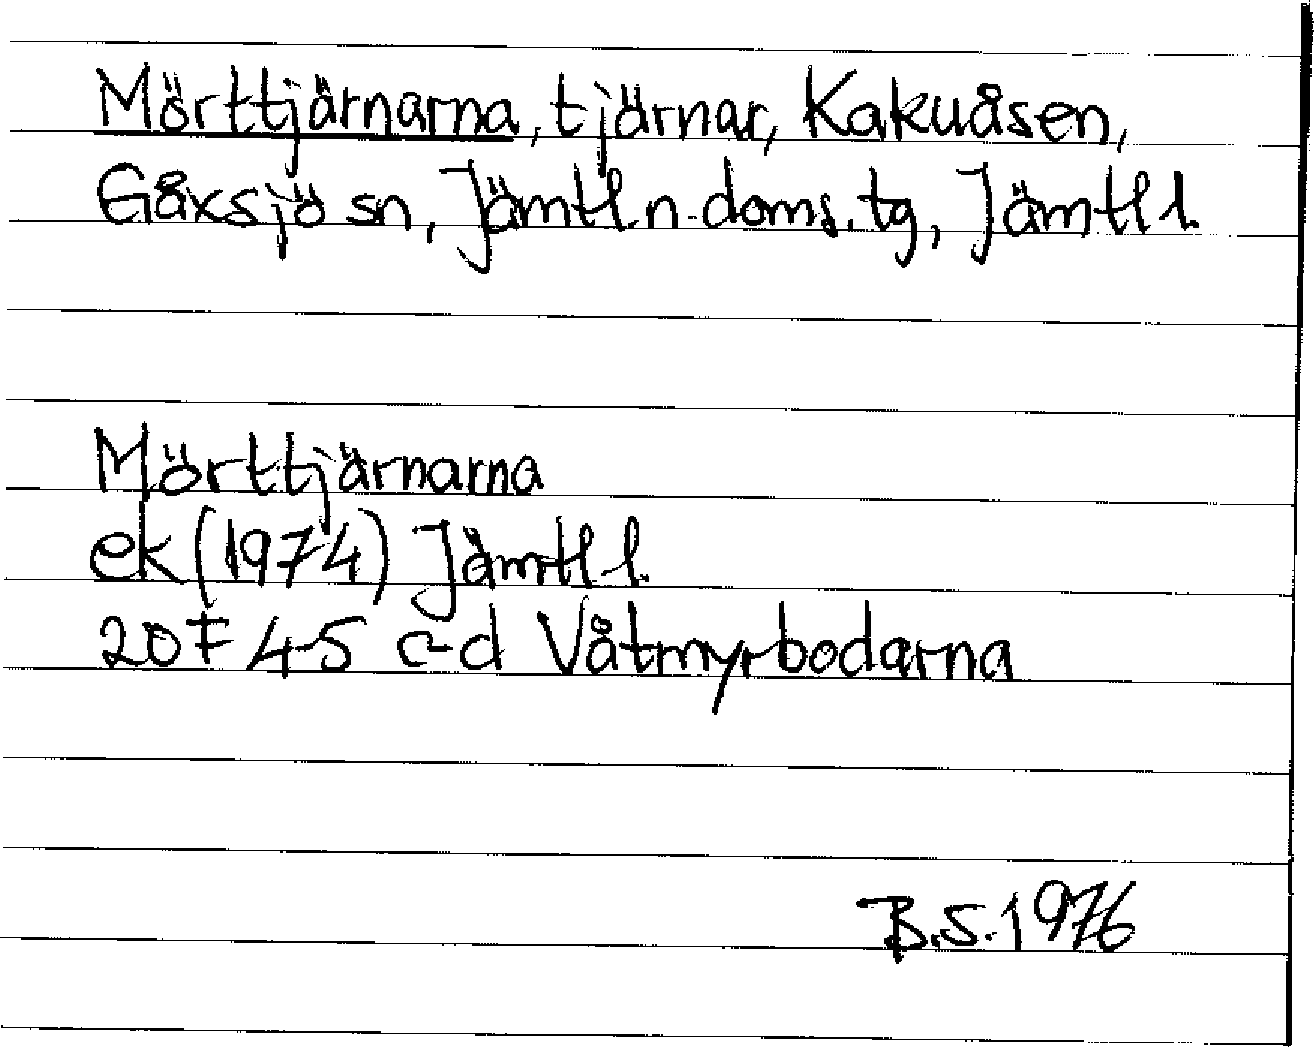 Mörttjärnarna, tjärnar, Kakuåsen,
Gåxsjö sn, Jämtl. n. doms. tg, Jämtl l.
Mörttjärnarna
ek (1974) Jämtl l.
20F 4-5 c-d Våtmyrbodarna
B.S. 1976